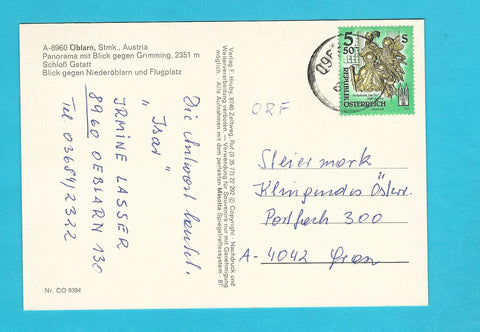 A-8960 Öblarn, Stmk., Austria
Panorama mit Blick gegen Grimming, 2351 m
Schloß Gstatt
Blick gegen Niederöblarn und Flugplatz
Die Antwort lautet:
„Isar"
IRMINE LASSER
8960 OEBLARN 130
Tel. 03684/2322
Nr. CO 9394
Verlag F. Hruby, 8740 Zeltweg, Ruf (0 35 77) 22 292 © Copyright · Nachdruck und
Weiterverarbeitung verboten — Verwendung für Souvenirs nur mit Genehmigung
möglich · Alle Aufnahmen mit dem perfekten Minolta Spiegelreflexsystem · 87
5 50 S
REPUBLIK
ÖSTERREICH
ORF
Steiermark
Klingendes Österr.
Postfach 300
A-4042 Graz